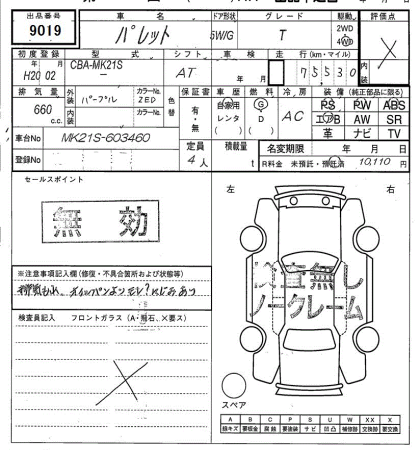 出品番号 車名 ドア形状 グレード 駆動 評価点
9019 パレット 5W/G T 2WD 4WD ×
初度登録 型式 シフト 車検 走行(km・マイル) 内装
年 月 CBA-MK21S AT 年 月 75530
H20 02 －
排気量 外装 カラーNo. 色替 保証書 車歴 燃料 冷房 装備(純正部品に限る)
660 c.c. パープル ZED 有・無 自家用 G AC PS PW ABS
内装 カラーNo. レンタ D エアB AW SR
( ) ( ) 革 ナビ TV
車台No MK21S-603460 定員 積載量 名変期限 年 月 日
登録No 4人 t R料金 未預託・預託済 10,110円
セールスポイント
無効
左 右
※注意事項記入欄(修復・不具合箇所および状態等)
検査無し
ノークレーム
検査員記入 フロントガラス(A・飛石、×要ス)
×
スペア
A B C P S U W XX X
線キズ 要板金 腐蝕 要塗装 サビ 凹凸 補修跡 交換跡 要交換